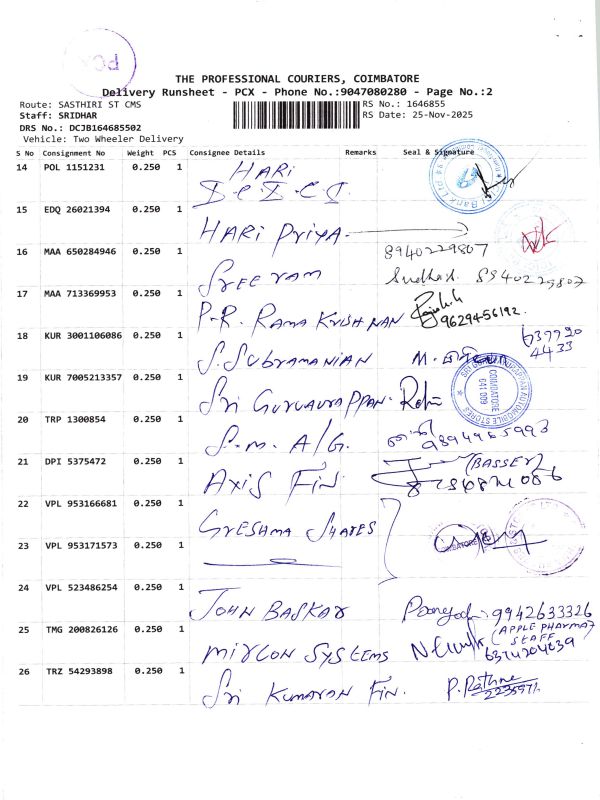 PCX
THE PROFESSIONAL COURIERS, COIMBATORE
Delivery Runsheet - PCX - Phone No.:9047080280 - Page No.:2
Route: SASTHIRI ST CMS
RS No.: 1646855
Staff: SRIDHAR
RS Date: 25-Nov-2025
DRS No.: DCJB164685502
Vehicle: Two Wheeler Delivery
S No Consignment No Weight PCS Consignee Details Remarks Seal & Signature
14 POL 1151231 0.250 1 HARI
I.C.I.C.I.
15 EDQ 26021394 0.250 1 HARI PRIYA
16 MAA 650284946 0.250 1 SREE RAM 8940229807
17 MAA 713369953 0.250 1 P.R. RAMA KRISHNAN 9629456192
18 KUR 3001106086 0.250 1 S. SUBRAMANIAN
19 KUR 7005213357 0.250 1 Sri GURUVAYRAPPAN
COIMBATORE
641 009
20 TRP 1300854 0.250 1 S.M. A/G. 9894965993
21 DPI 5375472 0.250 1 AXIS FIN. (BASSER)
22 VPL 953166681 0.250 1 GRESHMA SHARES
23 VPL 953171573 0.250 1
24 VPL 523486254 0.250 1 JOHN BASKAR 9942633326
25 TMG 200826126 0.250 1 MIRCON SYSTEMS (APPLE PHARMA)
STAFF
26 TRZ 54293898 0.250 1 Sri KUMARAN FIN. P. Rathna